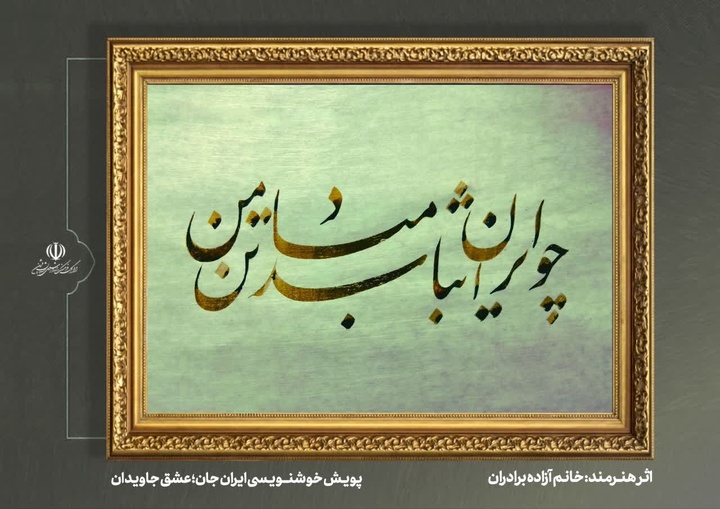 چو ایران نباشد تن من مباد
اثر هنرمند: خانم آزاده برادران
پویش خوشنویسی ایران جان؛ عشق جاویدان